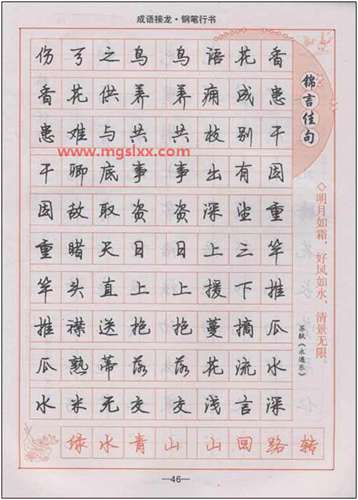 成语接龙·钢笔行书
伤弓之鸟鸟语花香
香花供养养痈成患
患难与共共枝别干
干卿底事事出有因
因敌取资资深望重
重睹天日日上三竿
竿头直上上援下推
推襟送抱抱蔓摘瓜
瓜熟蒂落落花流水
水米无交交浅言深
绿水青山山回路转
锦言佳句
◇明月如霜，好风如水，清景无限。
苏轼《永遇乐》
www.mgslxx.com
—46—